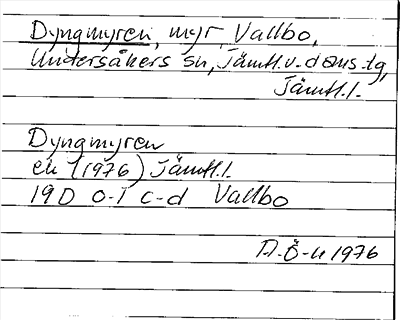 Dyngmyren, myr, Vallbo,
Undersåkers sn, Jämtl.v. doms.tg,
Jämtl.l.
Dyngmyren
ek (1976) Jämtl.l.
19D 0-1 c-d Vallbo
A.Ö-n 1976